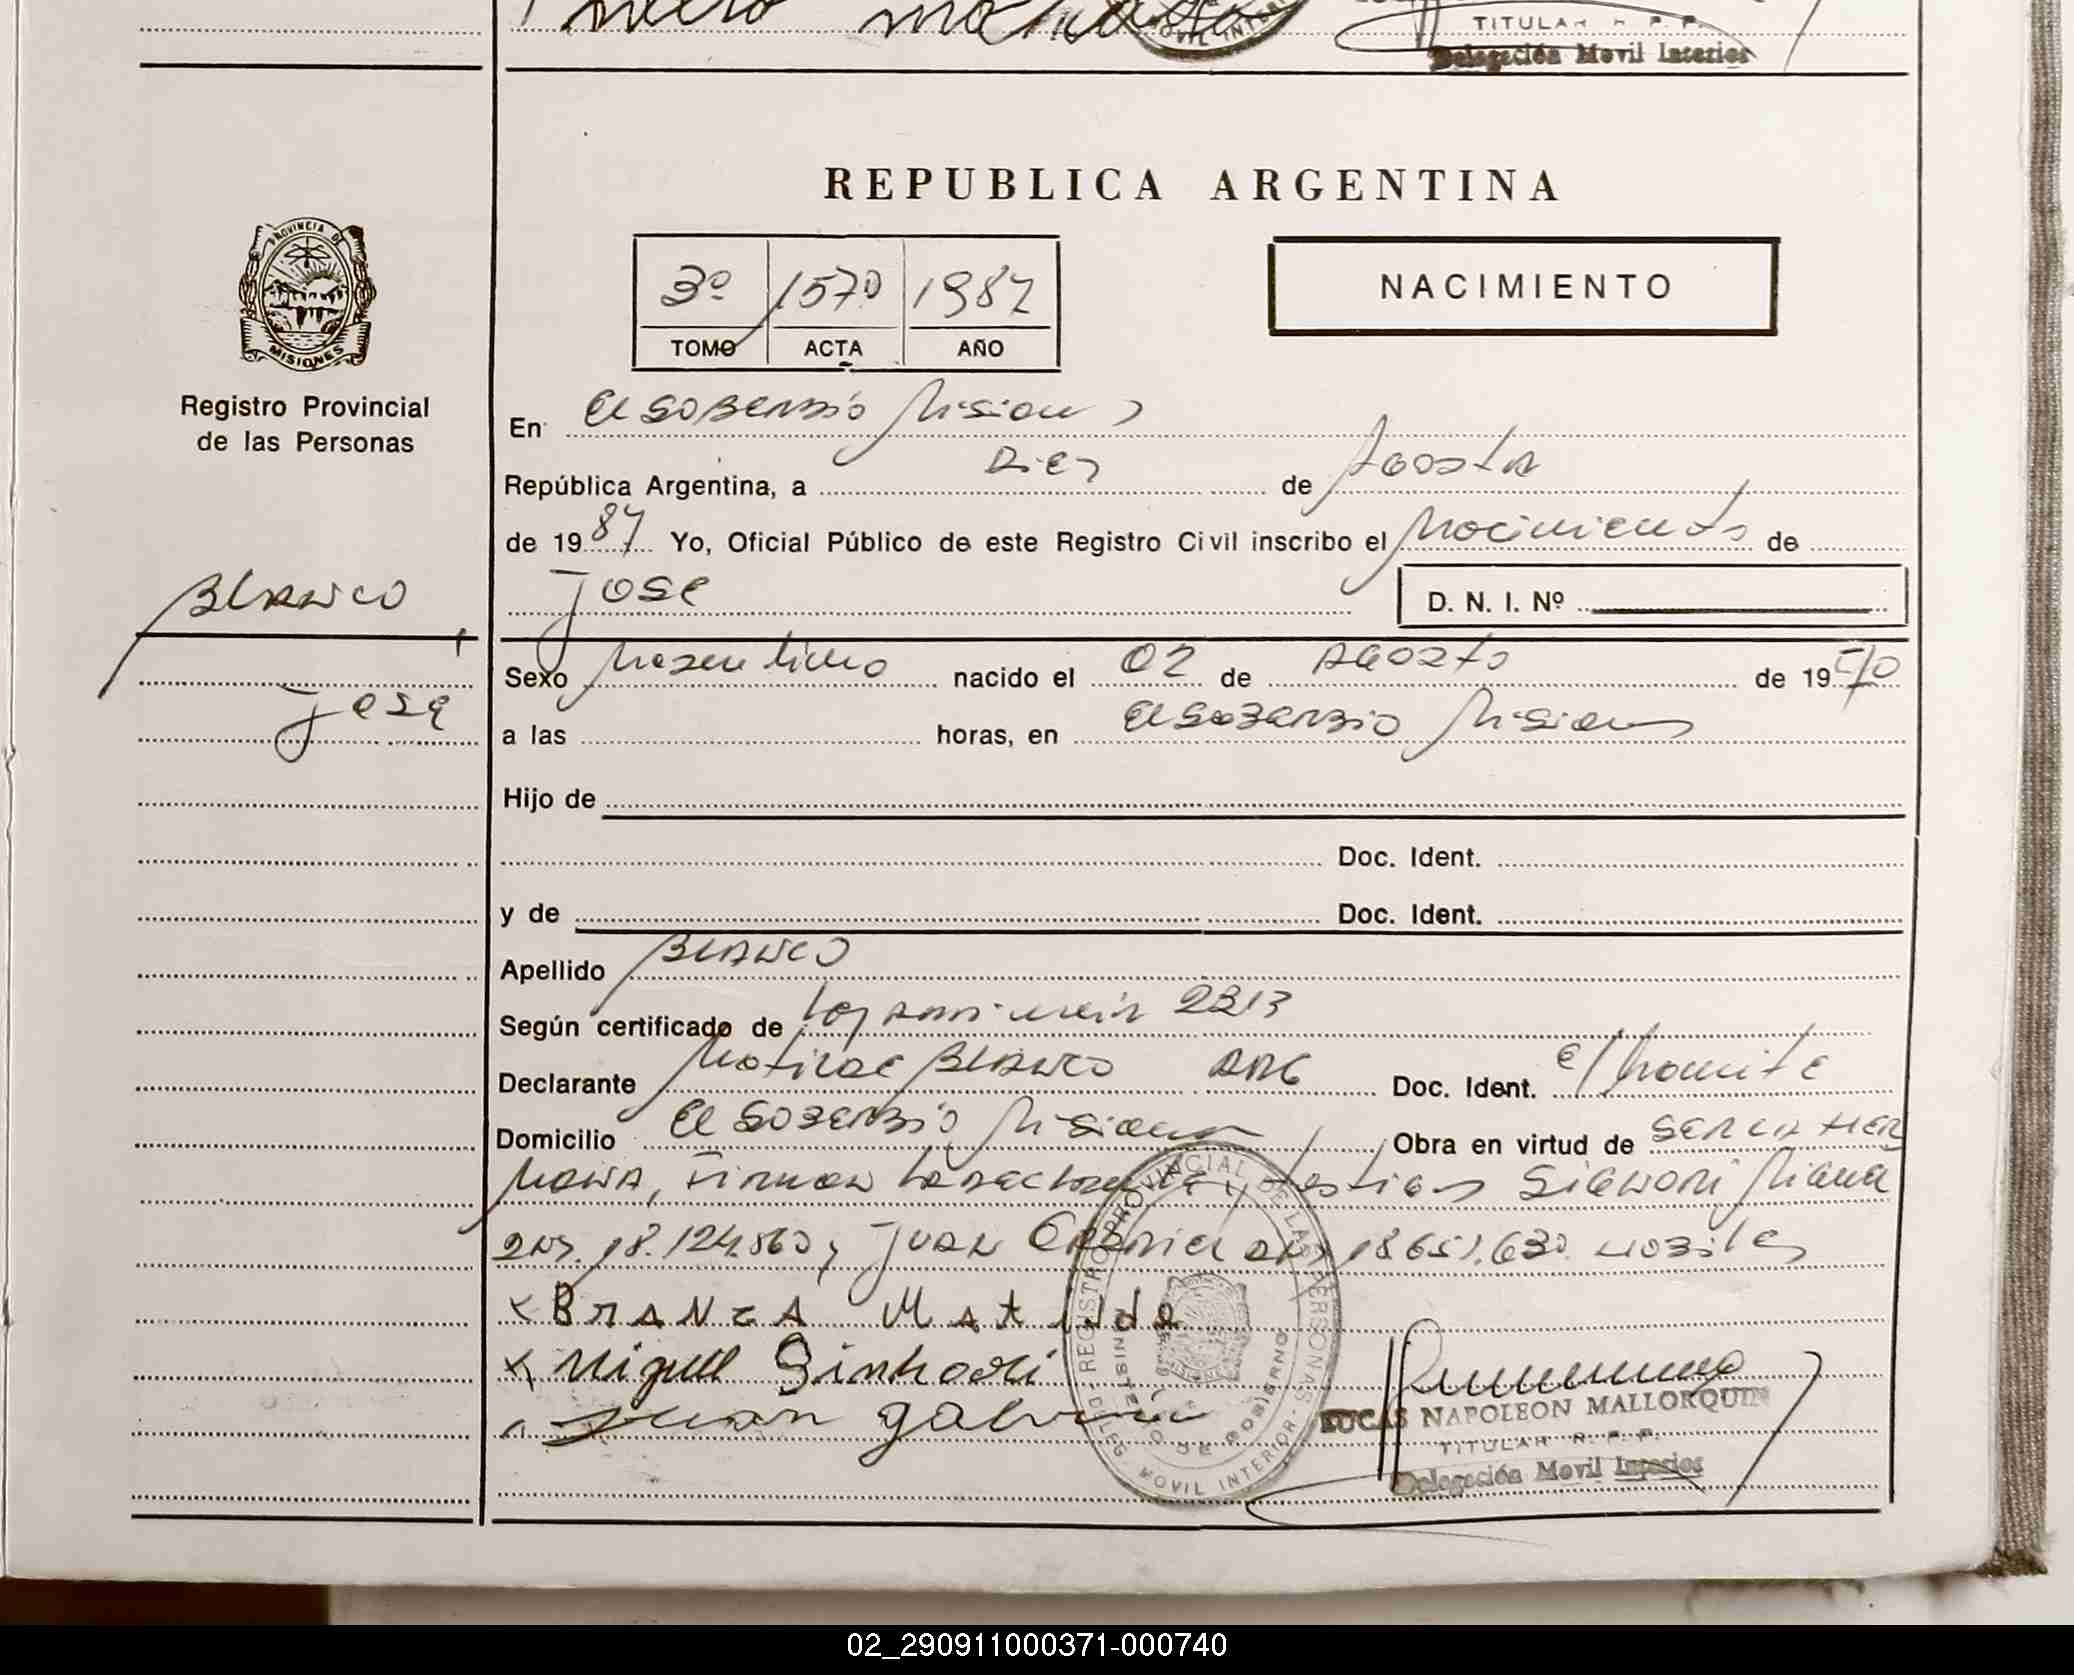 TITULAR R. P. P.
Delegación Movil Interior
REPUBLICA ARGENTINA
PROVINCIA DE
MISIONES
Registro Provincial
de las Personas
3º 1570 1987
TOMO ACTA AÑO
NACIMIENTO
En El Soberbio Misiones
República Argentina, a Diez de Agosto
de 1987 Yo, Oficial Público de este Registro Civil inscribo el Nacimiento de
Jose D. N. I. Nº
Blanco,
Jose
Sexo Masculino nacido el 02 de Agosto de 1970
a las horas, en El Soberbio Misiones
Hijo de
Doc. Ident.
y de Doc. Ident.
Apellido Blanco
Según certificado de 2213
Declarante Matilde Blanco ARG Doc. Ident. e/tramite
Domicilio El Soberbio Misiones Obra en virtud de ser la her
mana, firman la declarante y testigos
18.124.560, Juan Gabriel 18.651.630. hobiles
x BRANCA Matilde
x Miguel
Juan
REGISTRO PROVINCIAL DE LAS PERSONAS
DELEG. MOVIL INTERIOR
MINISTERIO DE GOBIERNO
LUCAS NAPOLEON MALLORQUIN
TITULAR R. P. P.
Delegación Movil Interior
02_290911000371-000740